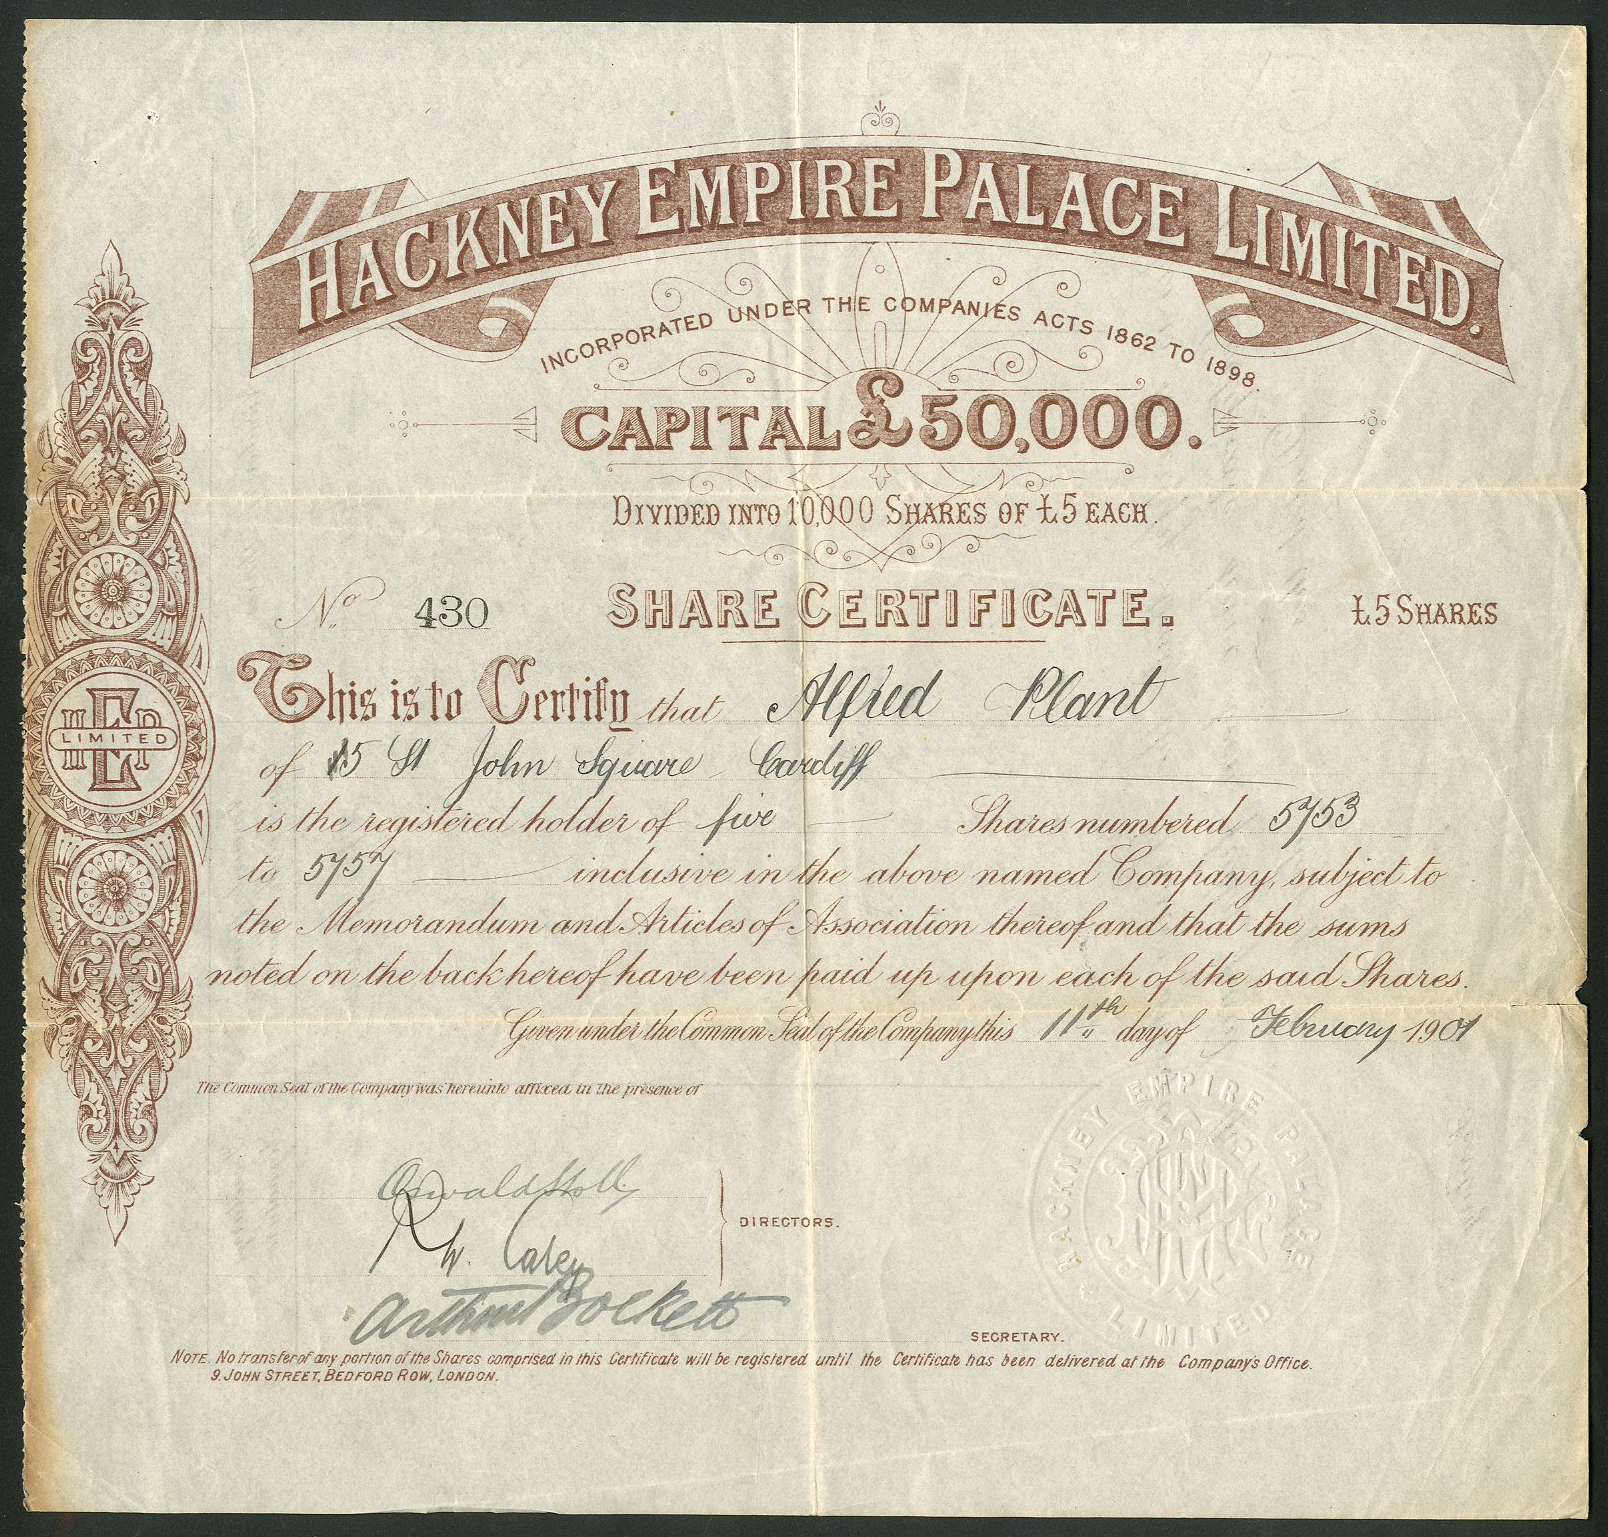 HACKNEY EMPIRE PALACE LIMITED.
INCORPORATED UNDER THE COMPANIES ACTS 1862 TO 1898.
CAPITAL £50,000.
DIVIDED INTO 10,000 SHARES OF £5 EACH.
No. 430 SHARE CERTIFICATE. £5 SHARES
This is to Certify that Alfred Plant
of 15 St John Square Cardiff
is the registered holder of five Shares numbered 5753
to 5757 inclusive in the above named Company, subject to
the Memorandum and Articles of Association thereof and that the sums
noted on the back hereof have been paid up upon each of the said Shares.
Given under the Common Seal of the Company this 11th day of February 1901
The Common Seal of the Company was hereunto affixed in the presence of
Oswald Stoll
DIRECTORS.
SECRETARY.
NOTE. No transfer of any portion of the Shares comprised in this Certificate will be registered until the Certificate has been delivered at the Company's Office.
9. JOHN STREET, BEDFORD ROW, LONDON.
HEP
LIMITED
HACKNEY EMPIRE PALACE
LIMITED